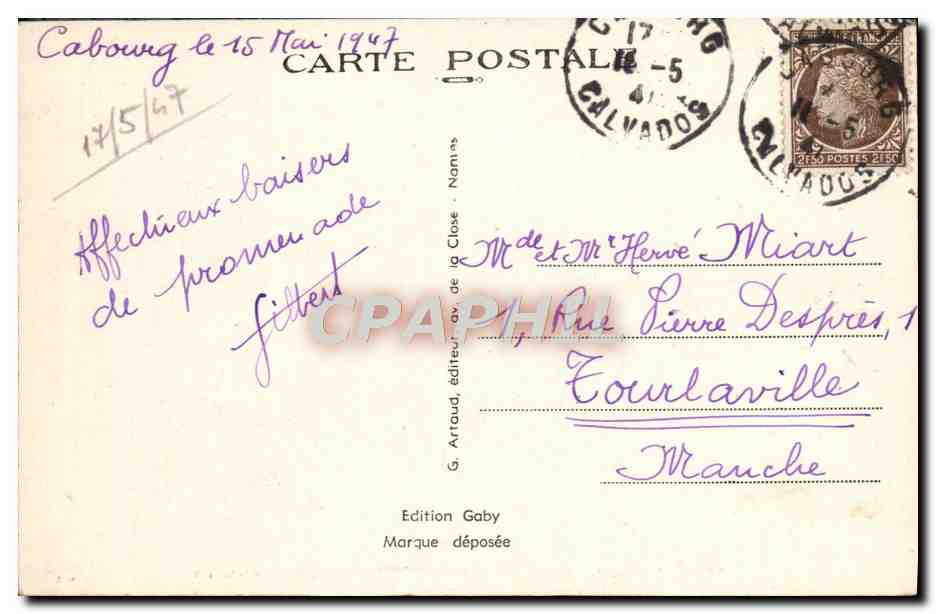 Cabourg le 15 Mai 1947
CARTE POSTALE
17/5/47
Affectueux baisers
de promenade
Gilbert
G. Artaud, éditeur, av. de la Close - Nantes
Mde et Mr Hervé Miart
1, Rue Pierre Després, 1
Tourlaville
Manche
Edition Gaby
Marque déposée
CALVADOS
CABOURG
CALVADOS
2F50 POSTES 2F50
CPAPHIL